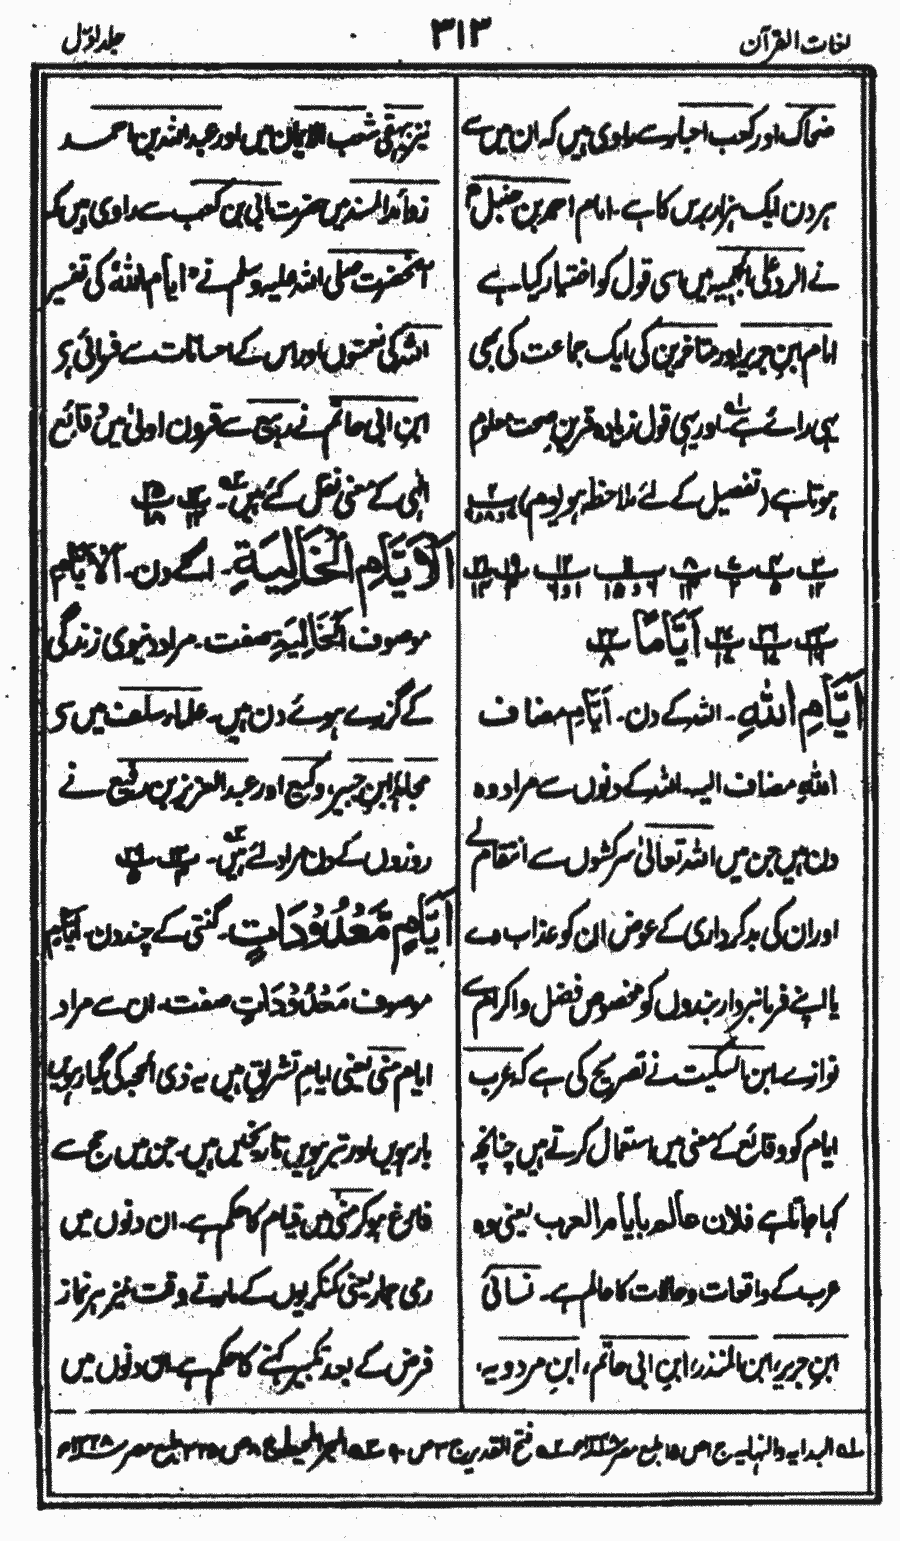 لغات القرآن
۳۱۳
جلد اوّل
ضحاک اور کعب احبار سے راوی ہیں کہ ان میں سے
ہر دن ایک ہزار برس کا ہے۔ امام احمد بن حنبل
نے الرد علی الجہمیہ میں اسی قول کو اختیار کیا ہے
امام ابن جریر اور متاخرین کی ایک جماعت کی بھی
یہی رائے ہے۔ اور یہی قول زیادہ قرین صحت معلوم
ہوتا ہے (تفصیل کے لئے ملاحظہ ہو یوم)
اَیَّامًا
اَیَّامِ اللّٰهِ۔ اللہ کے دن۔ اَیَّامِ مضاف
اللّٰهِ مضاف الیہ۔ اللہ کے دنوں سے مراد وہ
دن ہیں جن میں اللہ تعالیٰ سرکشوں سے انتقام لے
اور ان کی بدکرداری کے عوض ان کو عذاب دے
یا اپنے فرمانبردار بندوں کو مخصوص فضل و اکرام سے
نوازے۔ ابن السکیت نے تصریح کی ہے کہ عرب
ایام کو وقائع کے معنی میں استعمال کرتے ہیں چنانچہ
کہا جاتا ہے فلان عالم بایام العرب یعنی وہ
عرب کے واقعات و حالات کا عالم ہے۔ نسائی
ابن جریر، ابن المنذر، ابن ابی حاتم، ابن مردویہ،
نیز بیہقی شعب الایمان میں اور عبد اللہ بن احمد
زوائد المسند میں حضرت ابی بن کعب سے راوی ہیں کہ
آنحضرت صلی اللہ علیہ وسلم نے "ایام اللہ" کی تفسیر
اللہ کی نعمتوں اور اس کے احسانات سے فرمائی ہے
ابن ابی حاتم نے ربیع سے قرون اولیٰ میں وقائع
الٰہی کے معنی نقل کئے ہیں۔
اَلْاَیَّامِ الْخَالِیَةِ۔ اگے دن۔ اَلْاَیَّامِ
موصوف الْخَالِیَةِ صفت۔ مراد دنیوی زندگی
کے گزرے ہوئے دن ہیں۔ علماء سلف میں سے
مجاہد، ابن جبیر، وکیع اور عبد العزیز بن رفیع نے
روزوں کے دن مراد لئے ہیں۔
اَیَّامٍ مَّعْدُوْدَاتٍ۔ گنتی کے چند دن۔ اَیَّامٍ
موصوف مَعْدُوْدَاتٍ صفت۔ ان سے مراد
ایام منیٰ یعنی ایام تشریق ہیں۔ یہ ذی الحجہ کی گیارہویں
بارہویں اور تیرہویں تاریخیں ہیں۔ جن میں حج سے
فارغ ہو کر منیٰ میں قیام کا حکم ہے۔ ان دنوں میں
رمی جمار یعنی کنکریوں کے مارتے وقت نیز ہر نماز
فرض کے بعد تکبیر کہنے کا حکم ہے۔ ان دنوں میں
البدایہ والنہایہ ج ۱ ص ۱۵ طبع مصر فتح القدیر ج ۳ ص ۹۰ البحر المحیط ج ۸ ص ۳۲۵ طبع مصر